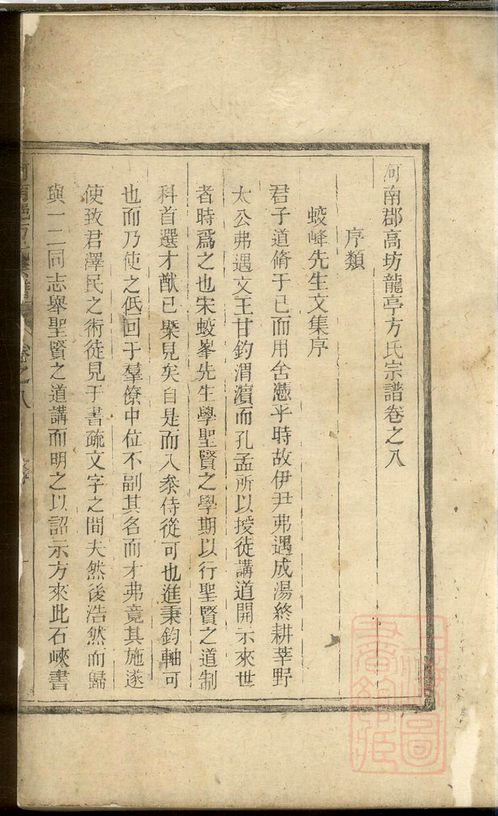 河南郡高坊龍亭方氏宗譜卷之八
序類
蛟峰先生文集序
君子道脩于已而用舍憑乎時故伊尹弗遇成湯終耕莘野
太公弗遇文王甘釣渭濵而孔孟所以授徒講道開示來世
者時爲之也宋蛟峯先生學聖賢之學期以行聖賢之道制
科首選才猷已槩見矣自是而入叅侍從可也進秉鈞軸可
也而乃使之低回于羣僚中位不副其名而才弗竟其施遂
使致君澤民之術徒見于書疏文字之間夫然後浩然而歸
與一二同志舉聖賢之道講而明之以詔示方來此石峽書
卷之八